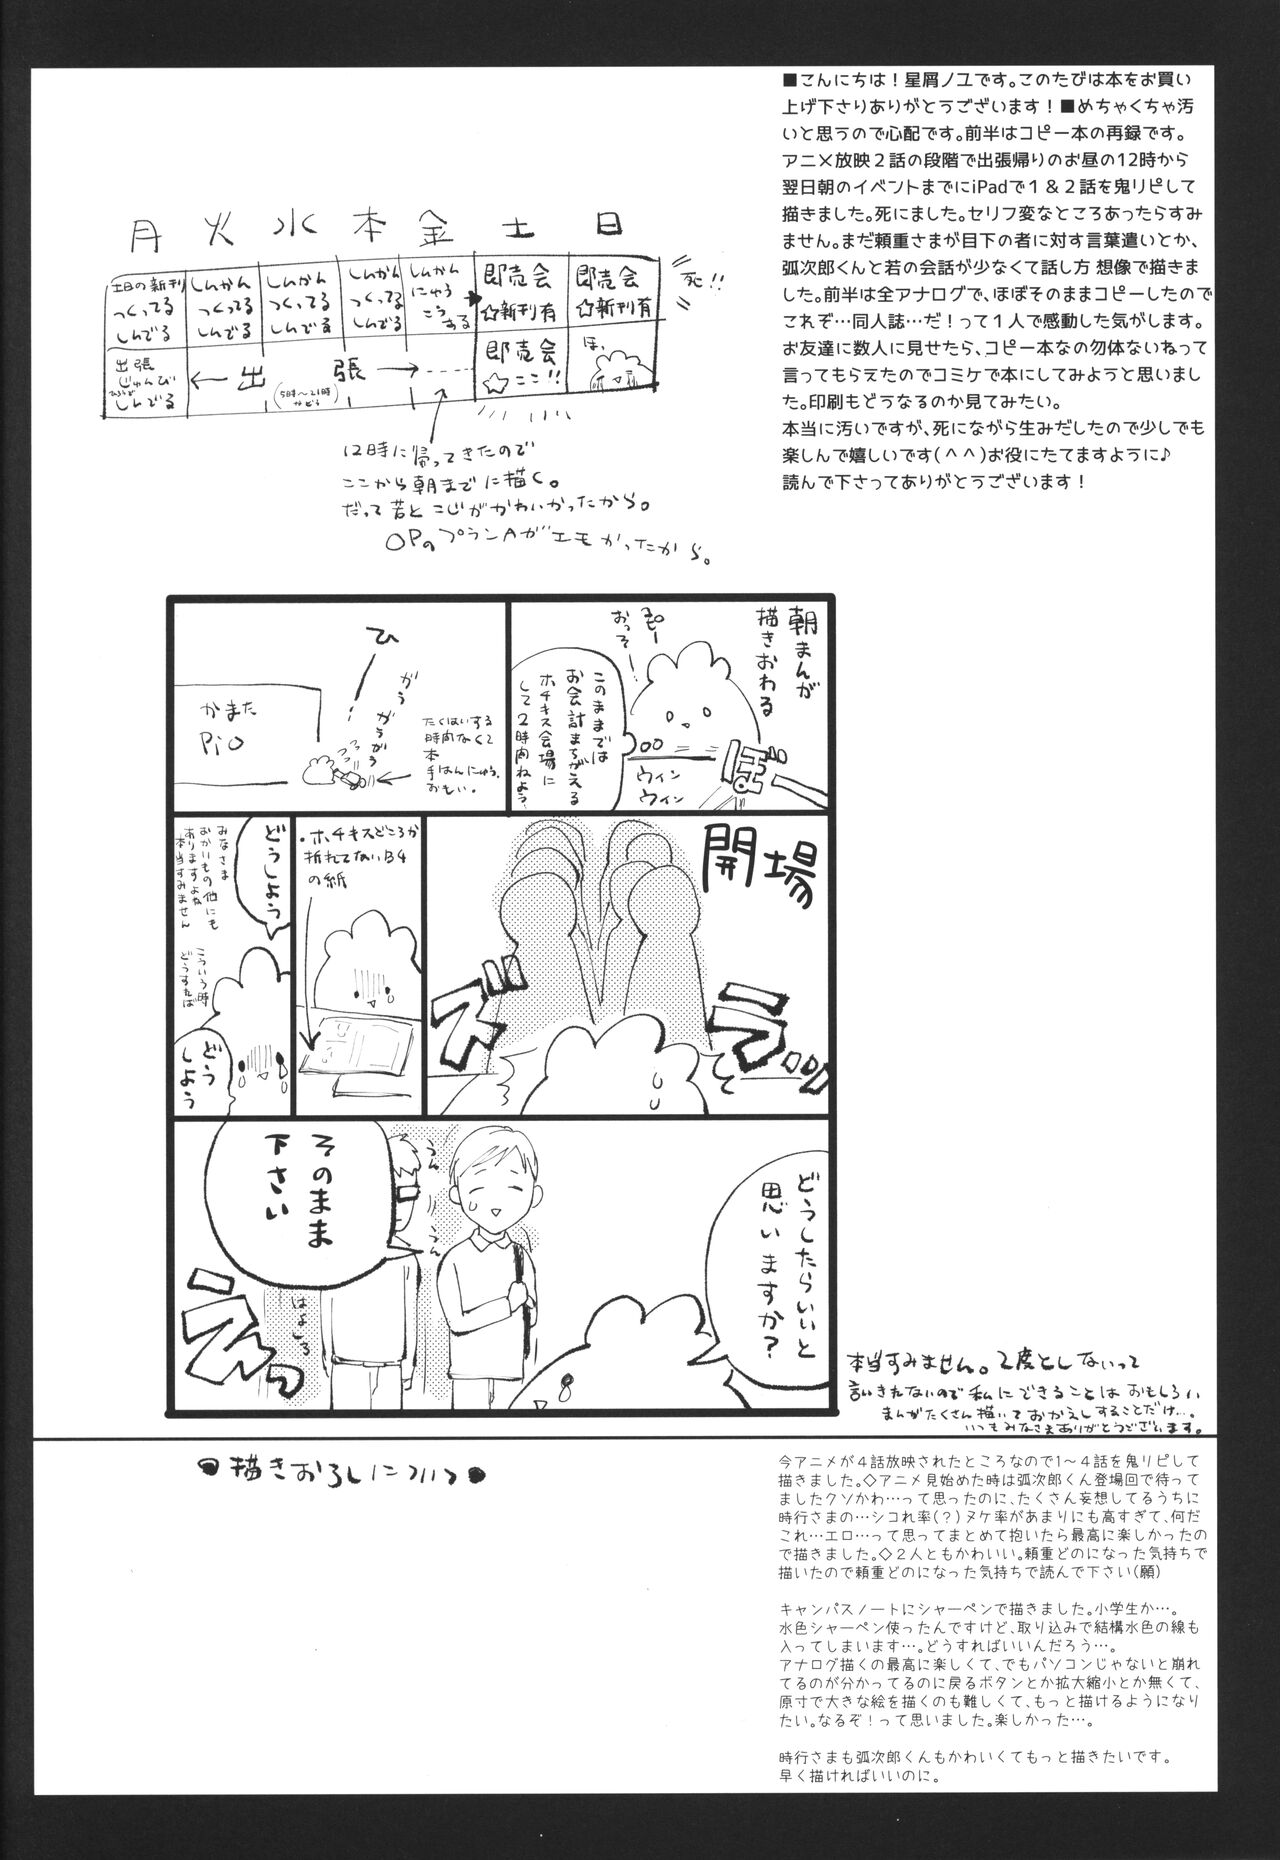 ■こんにちは！星屑ノユです。このたびは本をお買い
上げ下さりありがとうございます！■めちゃくちゃ汚
いと思うので心配です。前半はコピー本の再録です。
アニメ放映２話の段階で出張帰りのお昼の12時から
翌日朝のイベントまでにiPadで１＆２話を鬼リピして
描きました。死にました。セリフ変なところあったらすみ
ません。まだ頼重さまが目下の者に対す言葉遣いとか、
弧次郎くんと若の会話が少なくて話し方 想像で描きま
した。前半は全アナログで、ほぼそのままコピーしたので
これぞ…同人誌…だ！って１人で感動した気がします。
お友達に数人に見せたら、コピー本なの勿体ないねって
言ってもらえたのでコミケで本にしてみようと思いまし
た。印刷もどうなるのか見てみたい。
本当に汚いですが、死にながら生みだしたので少しでも
楽しんで嬉しいです(＾＾)お役にたてますように♪
読んで下さってありがとうございます！
月 火 水 本 金 土 日
土日の新刊
つくってる
しんでる
しんかん
つくってる
しんでる
しんかん
つくってる
しんでる
しんかん
つくってる
しんでる
しんかん
にゅう
こう
する
即売会
☆新刊有
即売会
☆新刊有
死!!
出張
じゅんび
しんでる
←出
張→
(5時〜21時
即売会
☆ここ!!
ほ、
12時に帰ってきたので
ここから朝までに描く。
だって若とこじがかわいかったから。
OPのプランAがエモかったから。
朝まんが
描きおわる
おっそ
このままでは
お会計まちがえる
ホチキス会場に
して2時間ねよう
ウィン
ウィン
ぼー
ひ
がう
がうがう
かまた
PiO
たくはいする
時間なくて
本
手はんにゅう。
おもい。
開場
ズ
ラッ
・ホチキスどころか
折れてないB4
の紙
どうしよう
みなさま
おかいもの他にも
ありますよね
本当すみません
こういう時
どうすれば
どう
しよう
どうしたらいいと
思いますか？
うん
うん
そのまま
下さい
はよしろ
えっ
本当すみません。2度としないって
言いきれないので私にできることはおもしろい
まんがたくさん描いておかえしすることだけ…。
いつもみなさまありがとうございます。
●描きおろしについて●
今アニメが４話放映されたところなので１〜４話を鬼リピして
描きました。◇アニメ見始めた時は弧次郎くん登場回で待って
ましたクソかわ…って思ったのに、たくさん妄想してるうちに
時行さまの…シコれ率(？)ヌケ率があまりにも高すぎて、何だ
これ…エロ…って思ってまとめて抱いたら最高に楽しかったの
で描きました。◇２人ともかわいい。頼重どのになった気持ちで
描いたので頼重どのになった気持ちで読んで下さい(願)
キャンパスノートにシャーペンで描きました。小学生か…。
水色シャーペン使ったんですけど、取り込みで結構水色の線も
入ってしまいます…。どうすればいいんだろう…。
アナログ描くの最高に楽しくて、でもパソコンじゃないと崩れ
てるのが分かってるのに戻るボタンとか拡大縮小とか無くて、
原寸で大きな絵を描くのも難しくて、もっと描けるようになり
たい。なるぞ！って思いました。楽しかった…。
時行さまも弧次郎くんもかわいくてもっと描きたいです。
早く描ければいいのに。